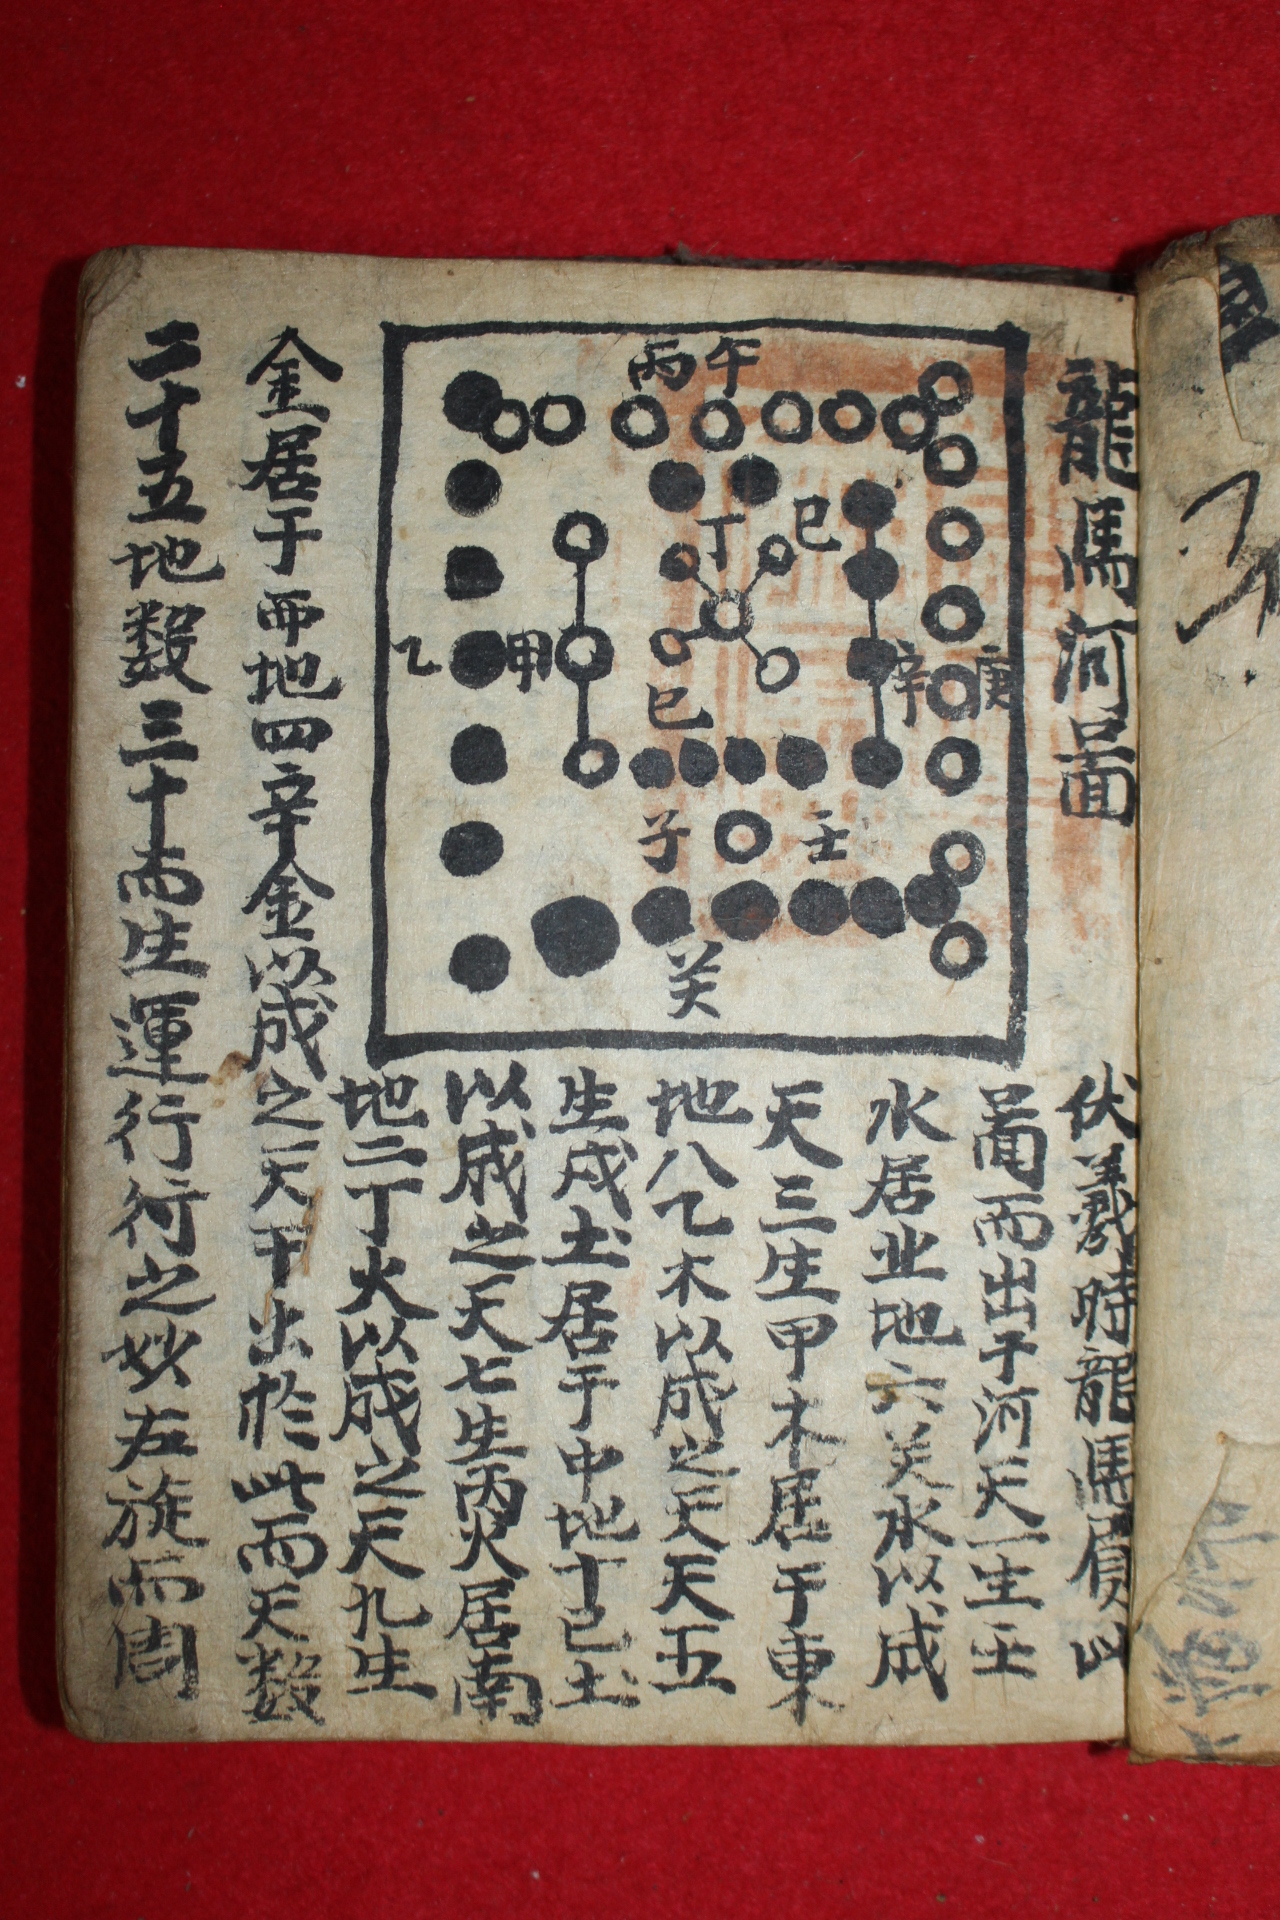 龍馬河啚
丙午
丁
巳
庚
辛
甲
乙
巳
子
壬
癸
伏羲時龍馬負此
啚而出于河天一生壬
水居北地六癸水以成
天三生甲木居于東
地八乙木以成之天天五
生戊土居于中地十己土
以成之天七生丙火居南
地二丁火以成之天九生
金居于西地四辛金以成之天干出於此而天数
二十五地數三十而生運行行之妙左旋而周